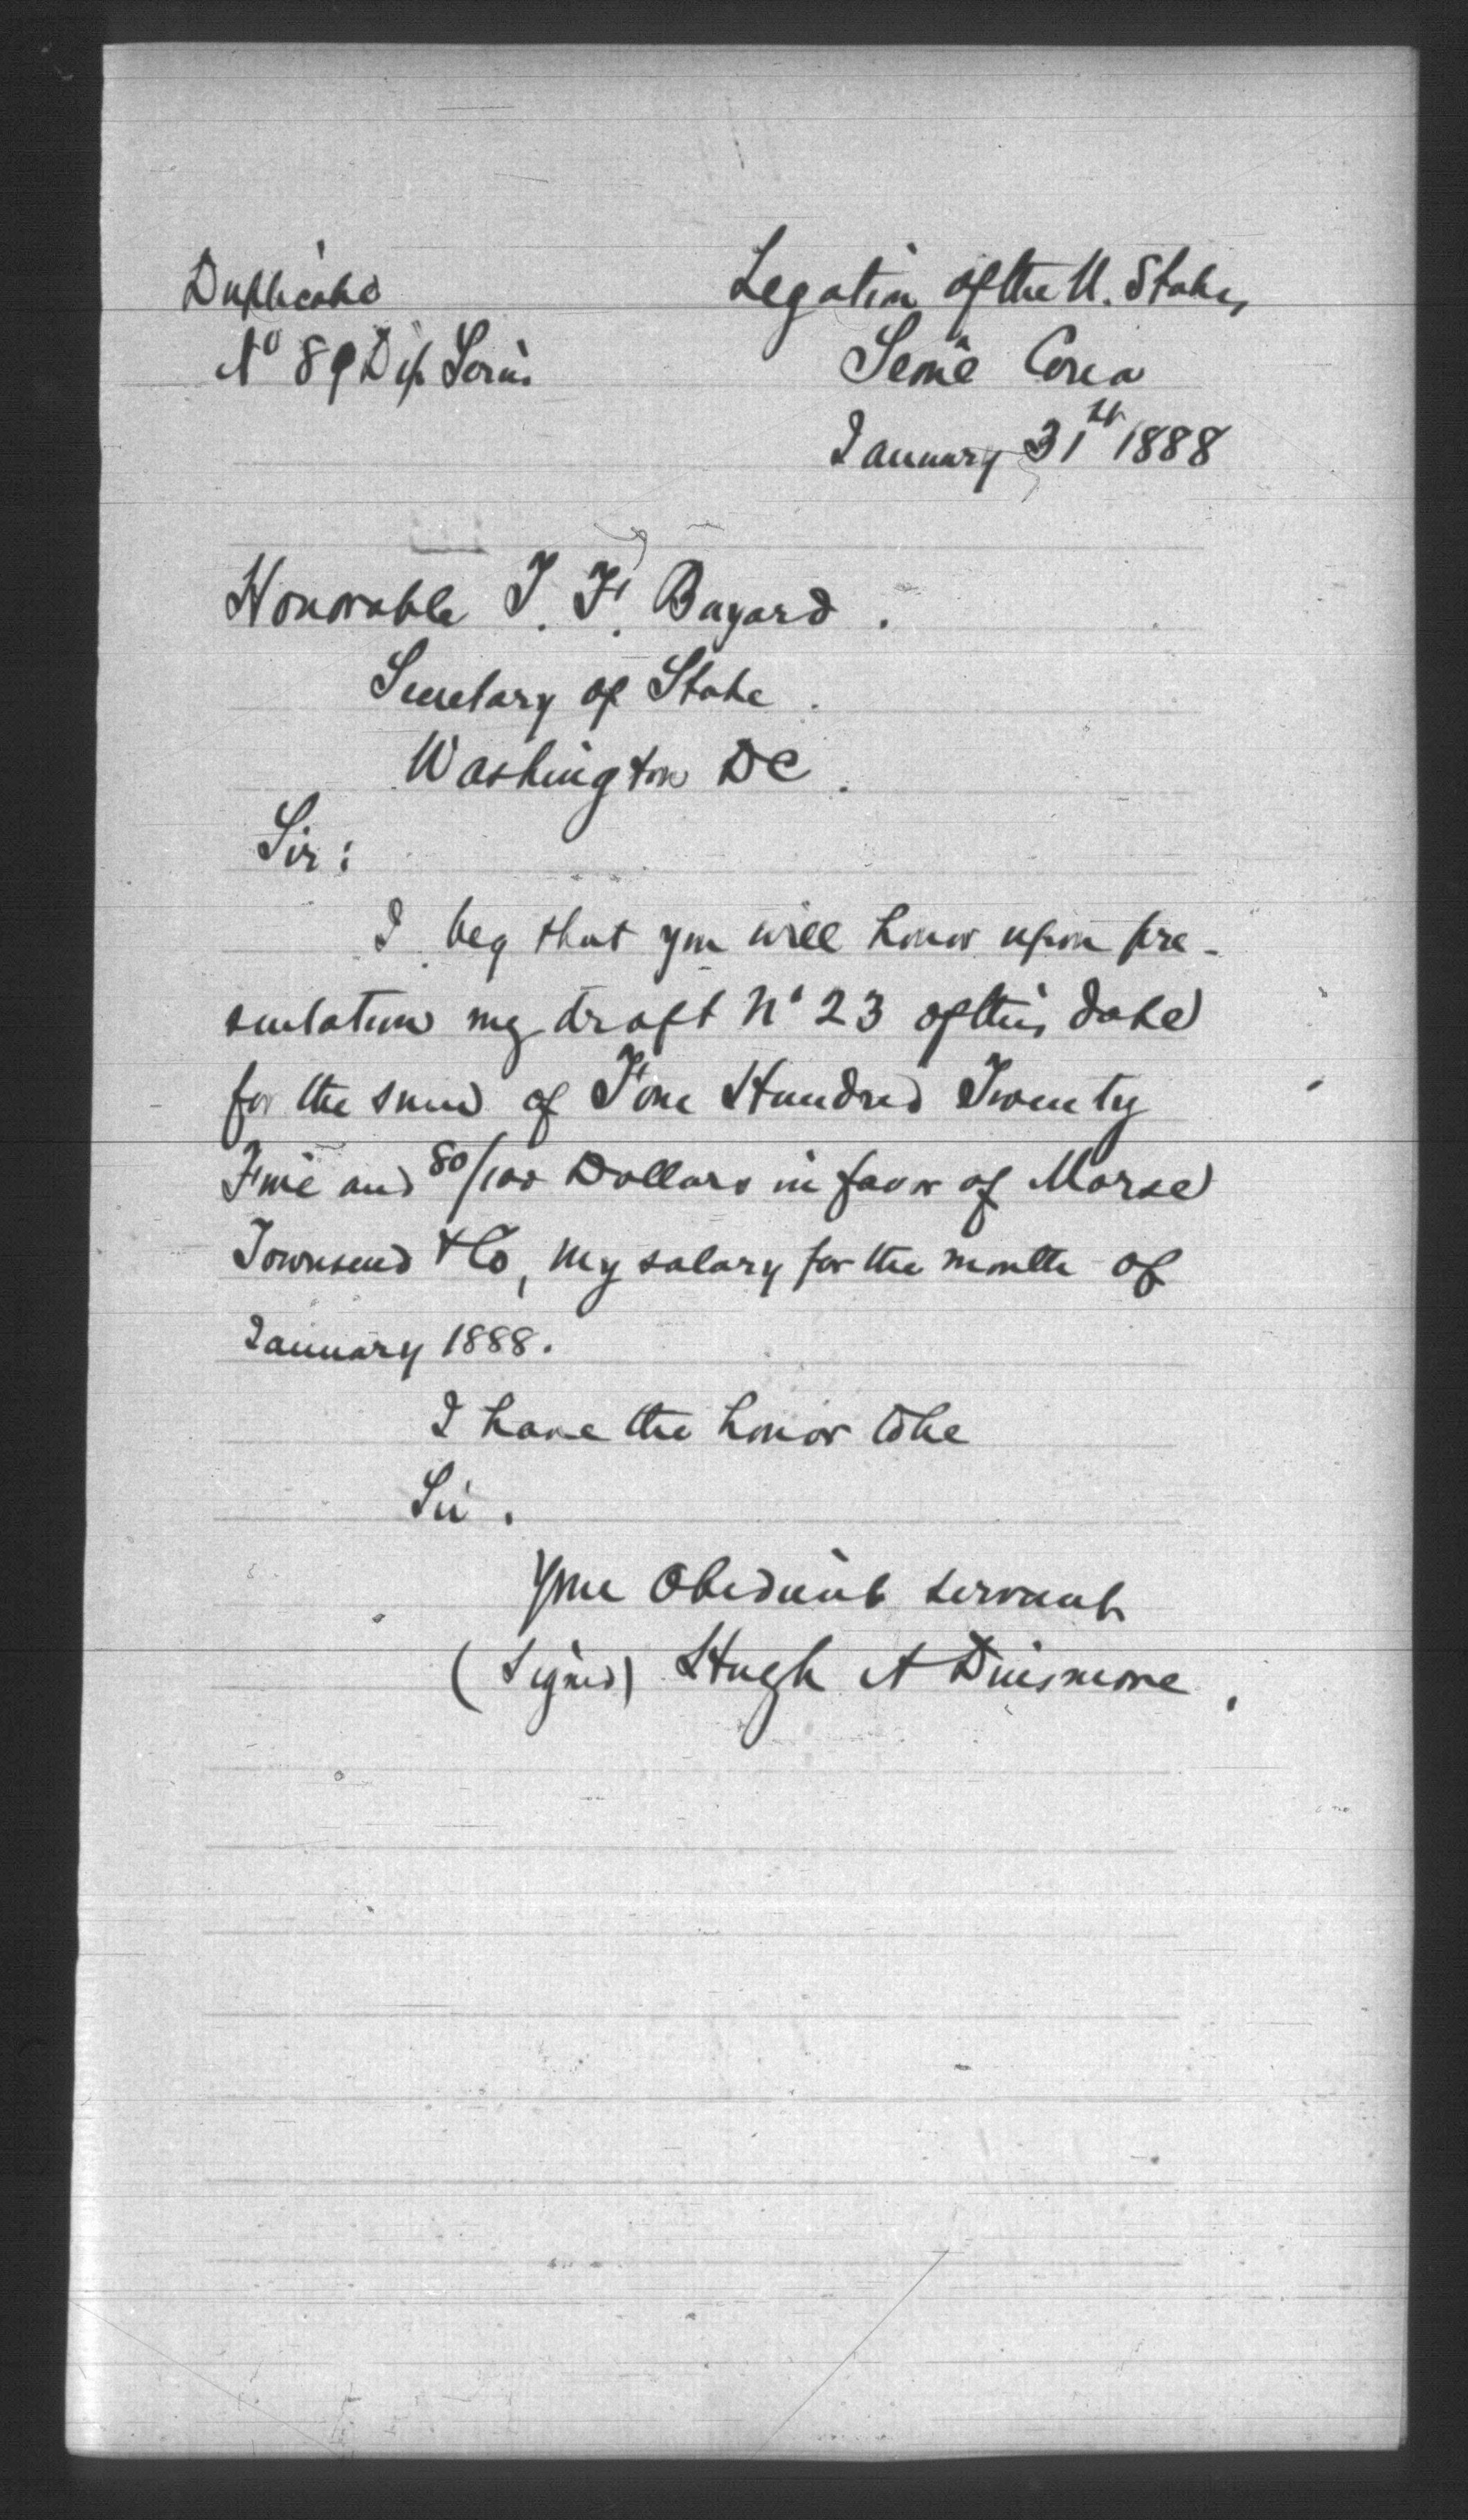 Duplicate
No 89 Dip Series
Legation of the U. States
Seoul Corea
January 31st 1888
Honorable T. F. Bayard.
Secretary of State.
Washington DC.
Sir:
I beg that you will honor upon pre-
sentation my draft No 23 of this date
for the sum of Four Hundred Twenty
Five and 80/100 Dollars in favor of Morse
Townsend & Co, my salary for the month of
January 1888.
I have the honor to be
Sir.
Your Obedient servant
(Signed) Hugh A Dinsmore.